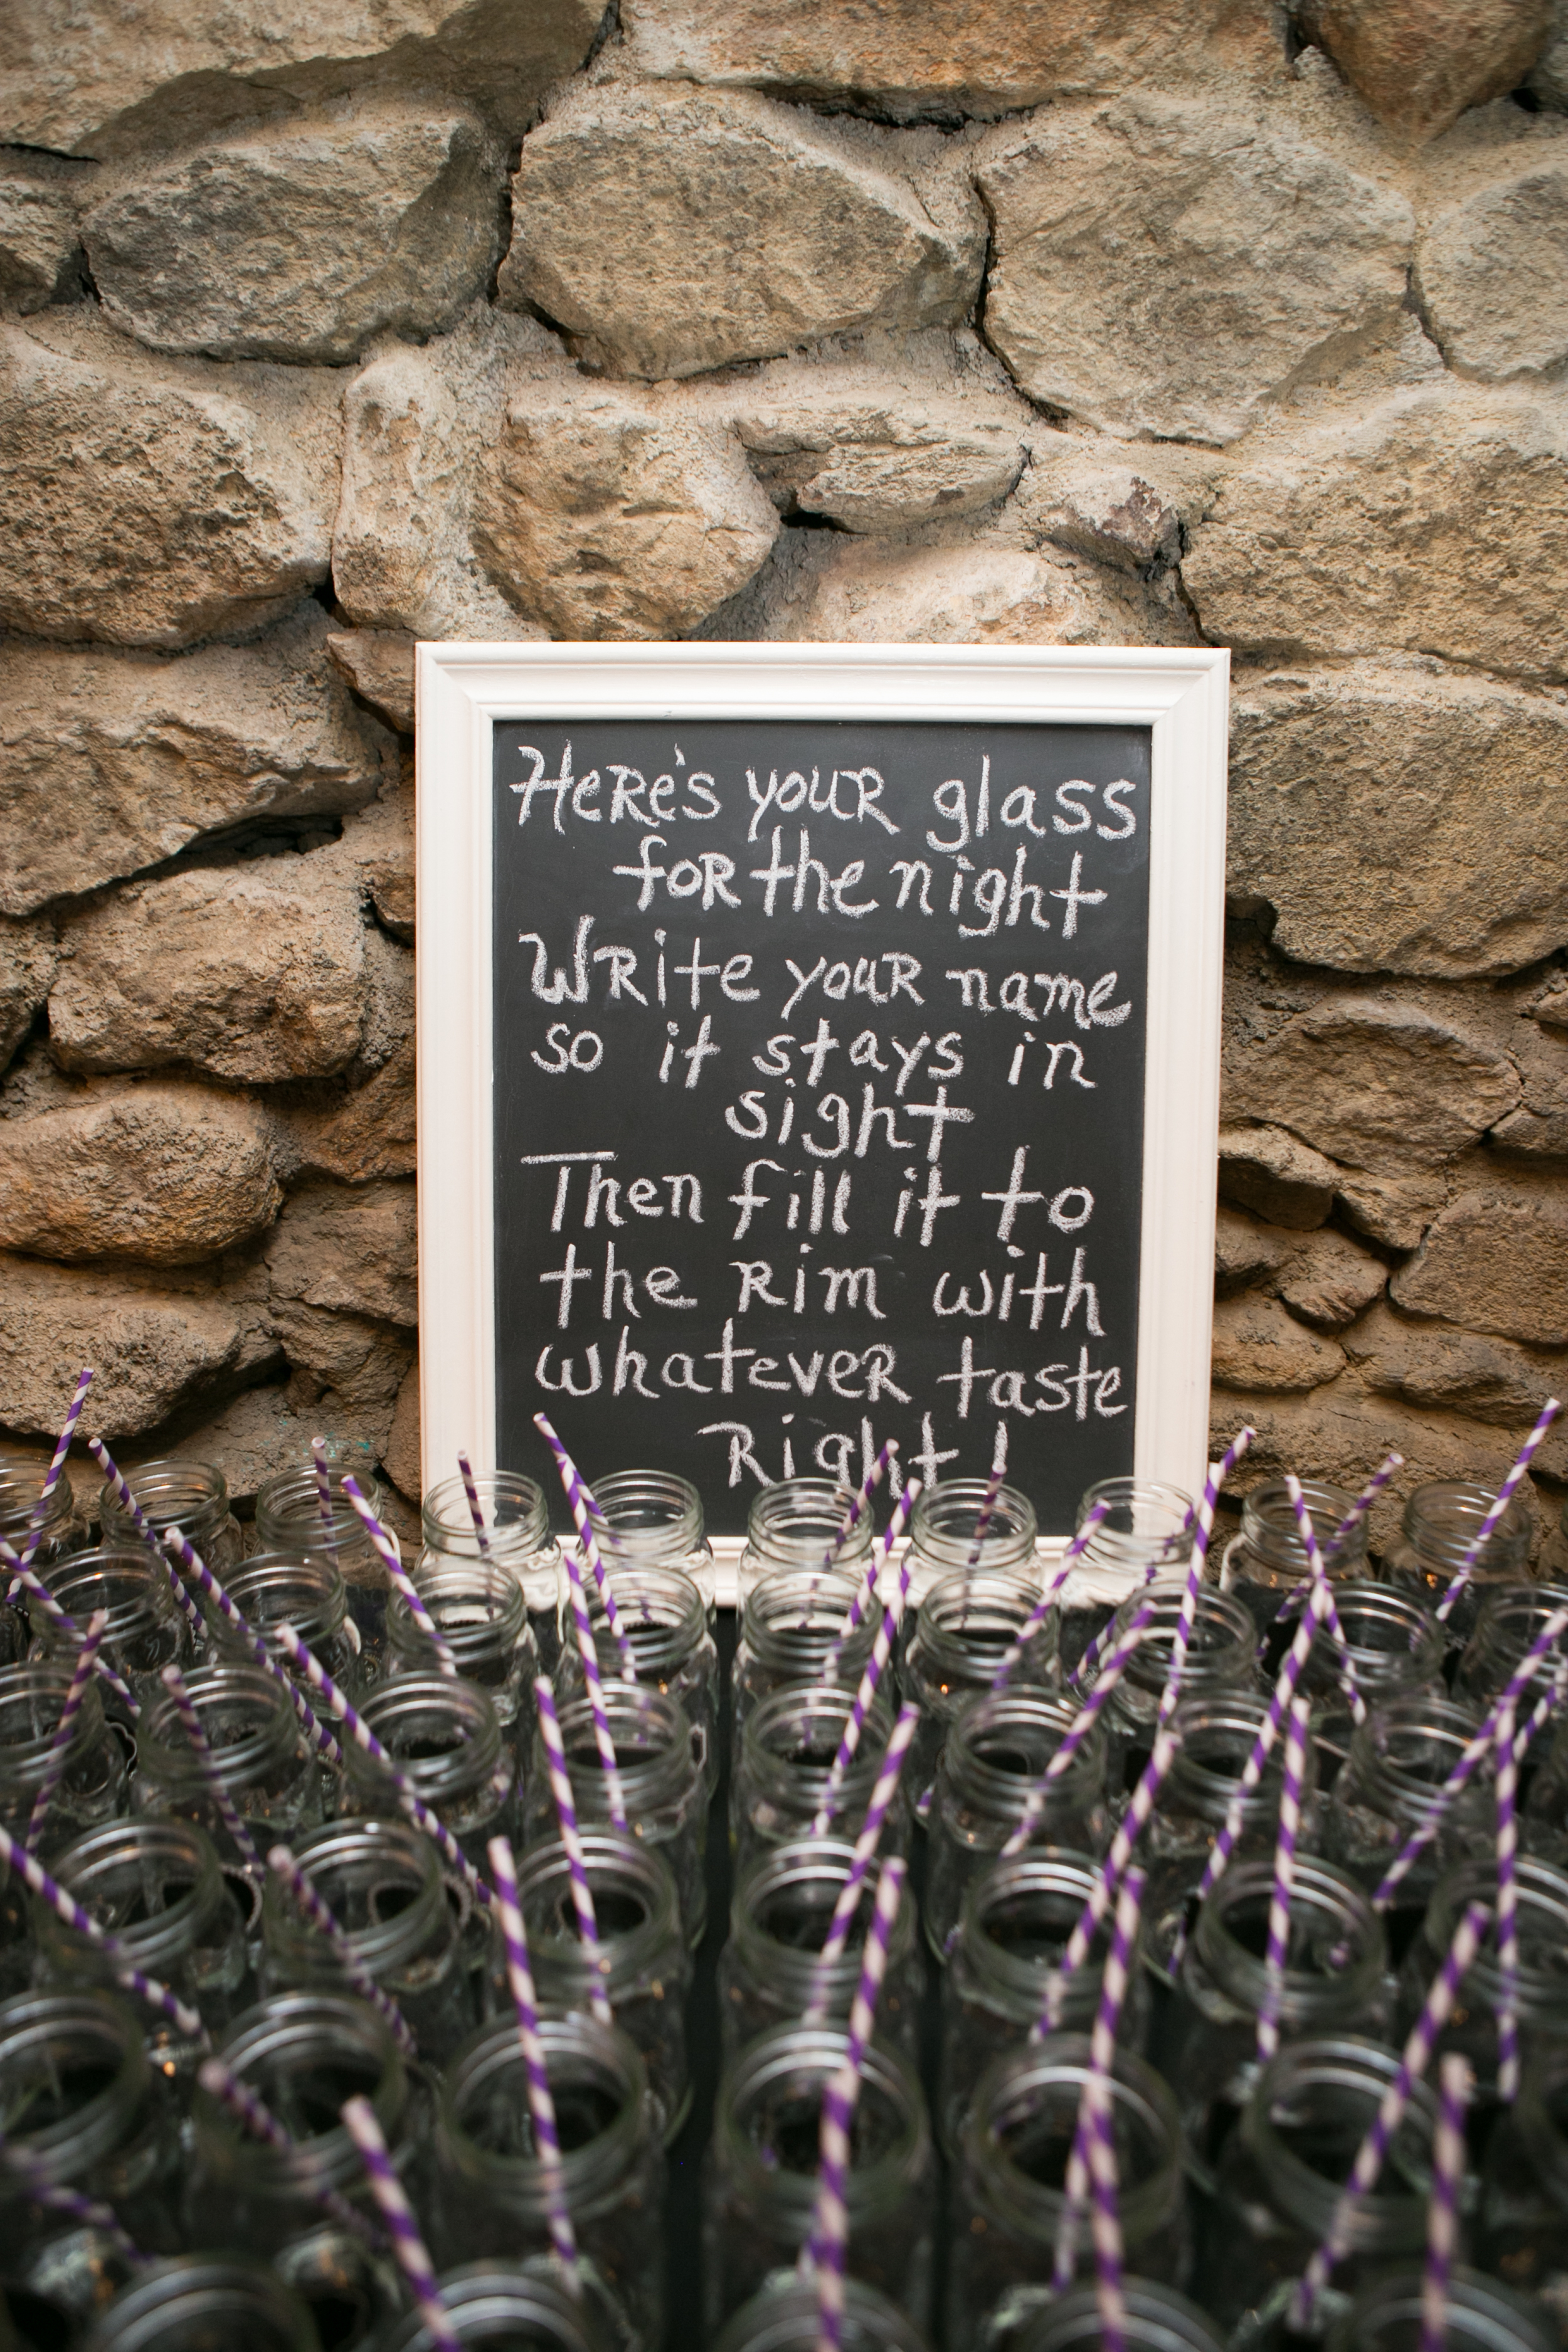 Here's your glass
for the night
Write your name
so it stays in
sight
Then fill it to
the Rim with
whatever taste
Right!